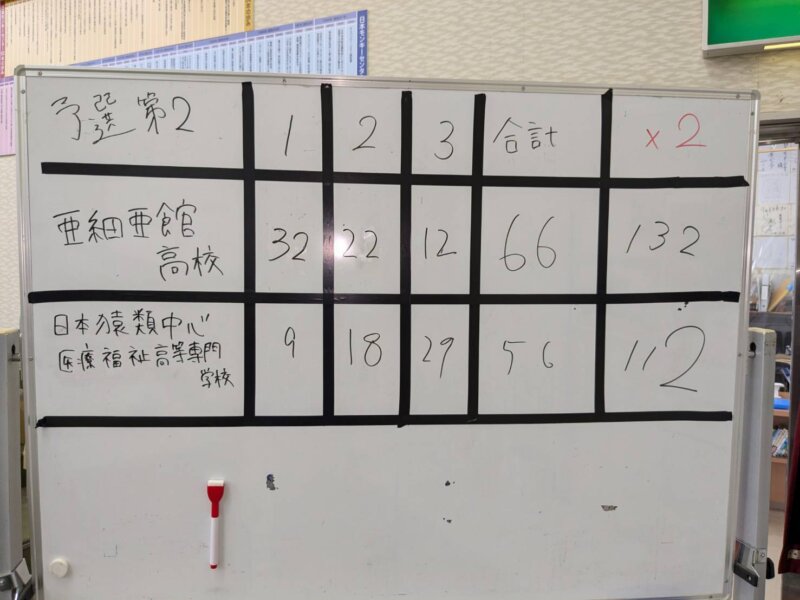 日本モンキーセンタ
予選第2 1 2 3 合計 ×2
亜細亜館
高校 32 22 12 66 132
日本猿類中心
医療福祉高等専門
学校 9 18 29 56 112